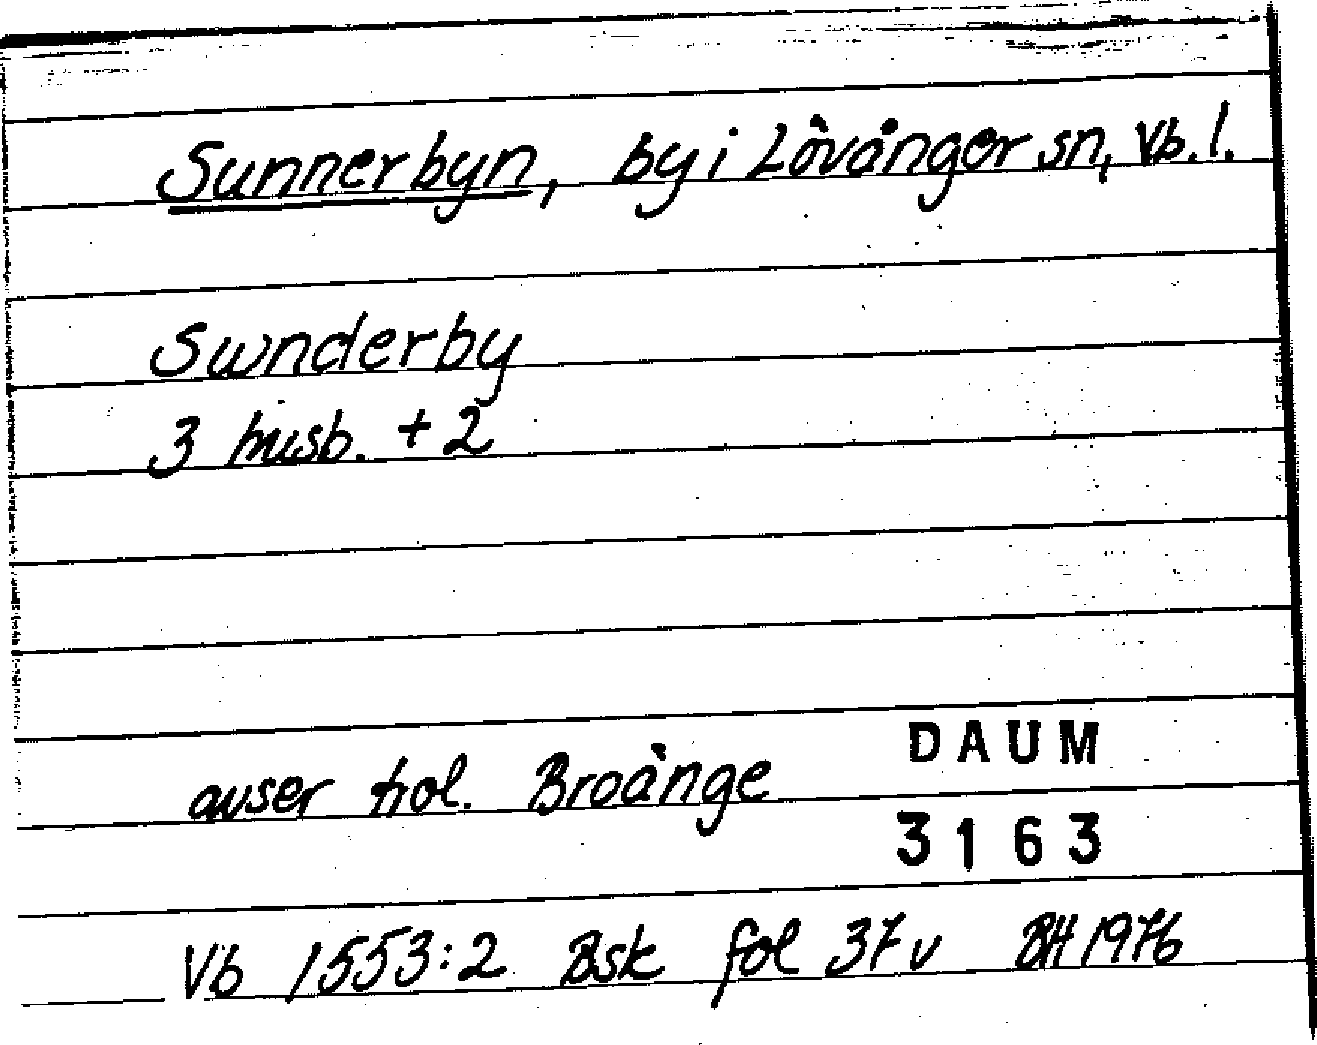 Sunnerbyn, by i Lövånger sn, Vb. l.
Swnderby
3 husb. + 2
avser trol. Broänge
DAUM
3163
Vb 1553:2 Bsk fol 37v BH 1976